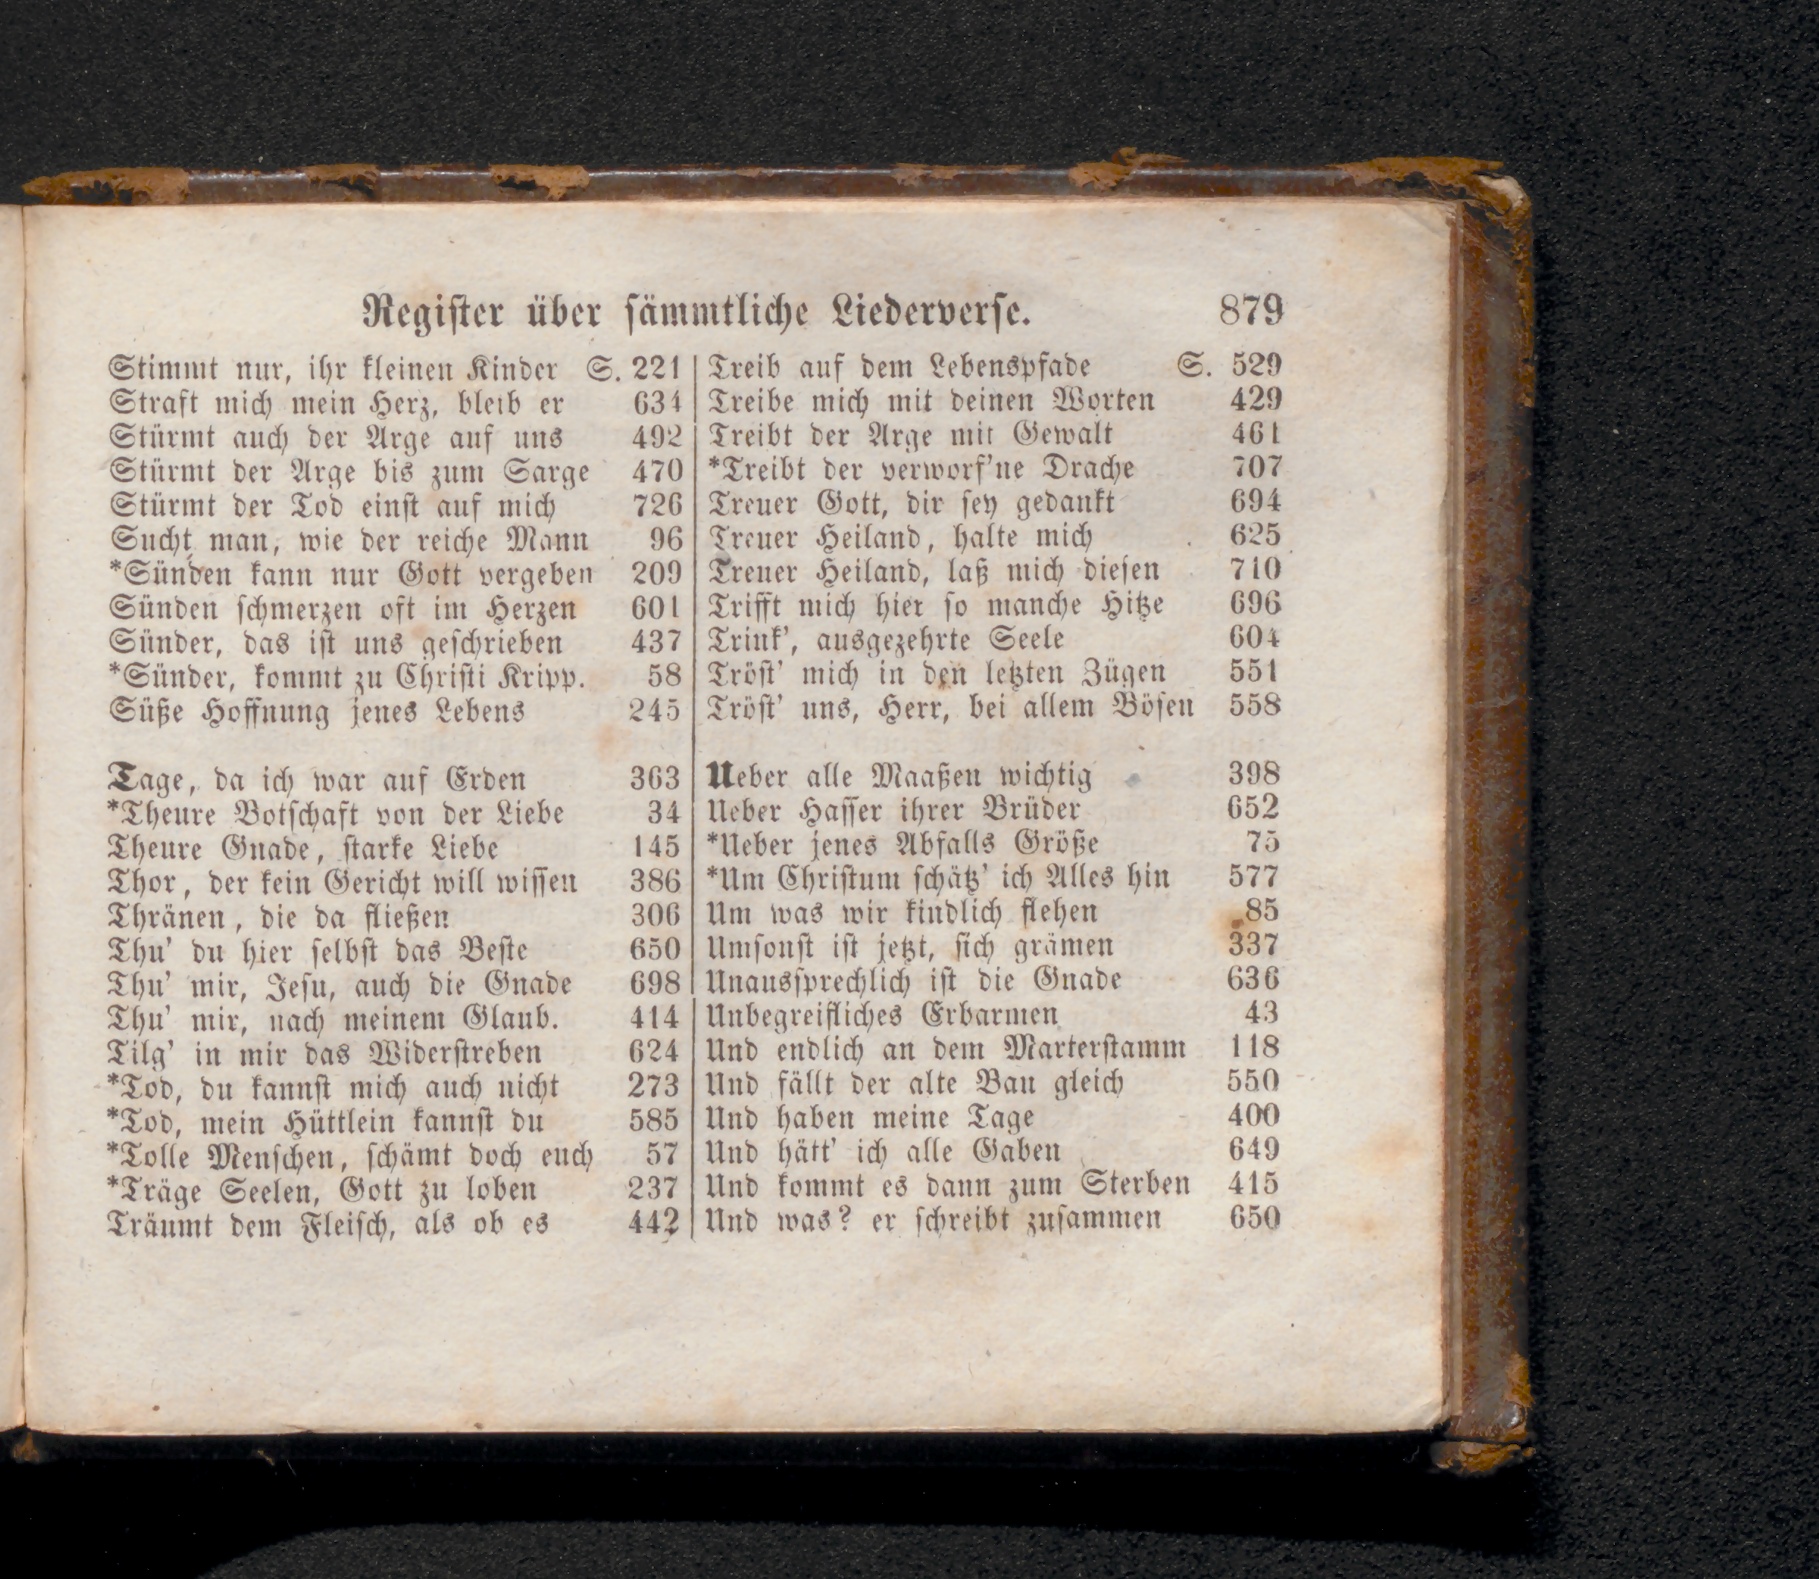 Register über sämmtliche Liederverse. 879
Stimmt nur, ihr kleinen Kinder S. 221
Straft mich mein Herz, bleib er 634
Stürmt auch der Arge auf uns 492
Stürmt der Arge bis zum Sarge 470
Stürmt der Tod einst auf mich 726
Sucht man, wie der reiche Mann 96
*Sünden kann nur Gott vergeben 209
Sünden schmerzen oft im Herzen 601
Sünder, das ist uns geschrieben 437
*Sünder, kommt zu Christi Kripp. 58
Süße Hoffnung jenes Lebens 245
Tage, da ich war auf Erden 363
*Theure Botschaft von der Liebe 34
Theure Gnade, starke Liebe 145
Thor, der kein Gericht will wissen 386
Thränen, die da fließen 306
Thu' du hier selbst das Beste 650
Thu' mir, Jesu, auch die Gnade 698
Thu' mir, nach meinem Glaub. 414
Tilg' in mir das Widerstreben 624
*Tod, du kannst mich auch nicht 273
*Tod, mein Hüttlein kannst du 585
*Tolle Menschen, schämt doch euch 57
*Träge Seelen, Gott zu loben 237
Träumt dem Fleisch, als ob es 442
Treib auf dem Lebenspfade S. 529
Treibe mich mit deinen Worten 429
Treibt der Arge mit Gewalt 461
*Treibt der verworf'ne Drache 707
Treuer Gott, dir sey gedankt 694
Treuer Heiland, halte mich 625
Treuer Heiland, laß mich diesen 710
Trifft mich hier so manche Hitze 696
Trink', ausgezehrte Seele 604
Tröst' mich in den letzten Zügen 551
Tröst' uns, Herr, bei allem Bösen 558
Ueber alle Maaßen wichtig 398
Ueber Hasser ihrer Brüder 652
*Ueber jenes Abfalls Größe 75
*Um Christum schätz' ich Alles hin 577
Um was wir kindlich flehen 85
Umsonst ist jetzt, sich grämen 337
Unaussprechlich ist die Gnade 636
Unbegreifliches Erbarmen 43
Und endlich an dem Marterstamm 118
Und fällt der alte Bau gleich 550
Und haben meine Tage 400
Und hätt' ich alle Gaben 649
Und kommt es dann zum Sterben 415
Und was? er schreibt zusammen 650